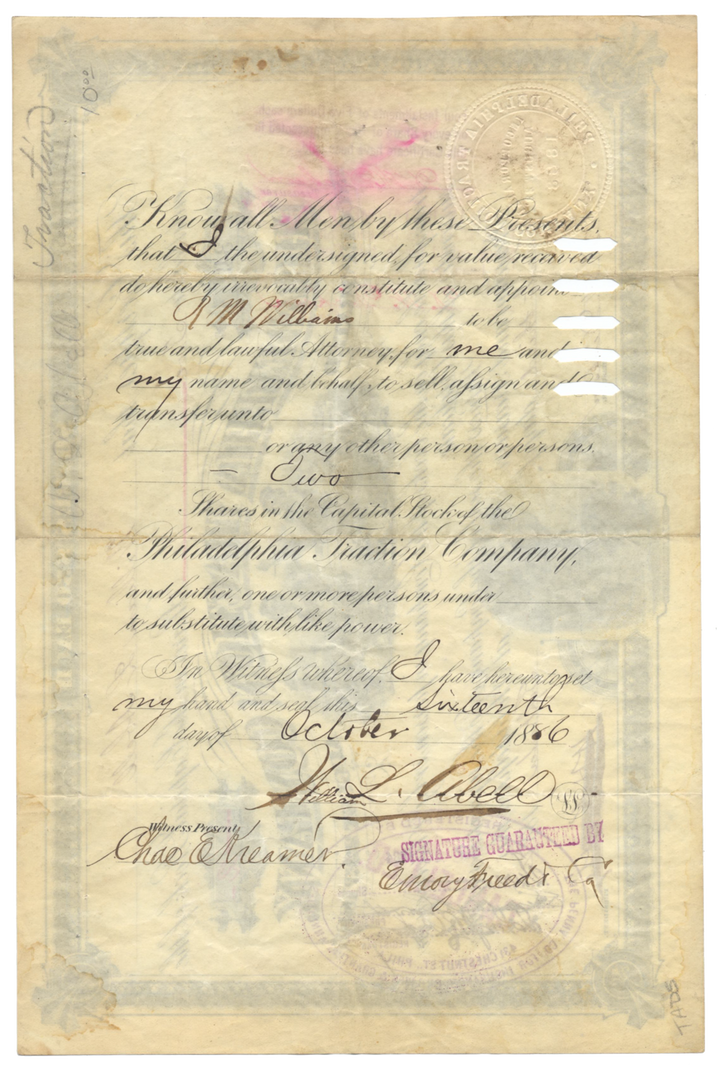 Traction
10.00
Know all Men by these Presents,
that I the undersigned, for value received
do hereby irrevocably constitute and appoint
R M Williams to be
true and lawful Attorney, for me and
my name and behalf, to sell, assign and
transfer unto
or any other person or persons,
Two
Shares in the Capital Stock of the
Philadelphia Traction Company,
and further, one or more persons under
to substitute with like power.
In Witness whereof, I have hereunto set
my hand and seal this sixteenth
day of October 1886
William L. Abell
Witness Present,
Chas E Kreamer.
SIGNATURE GUARANTEED BY
Emory Freed & Co